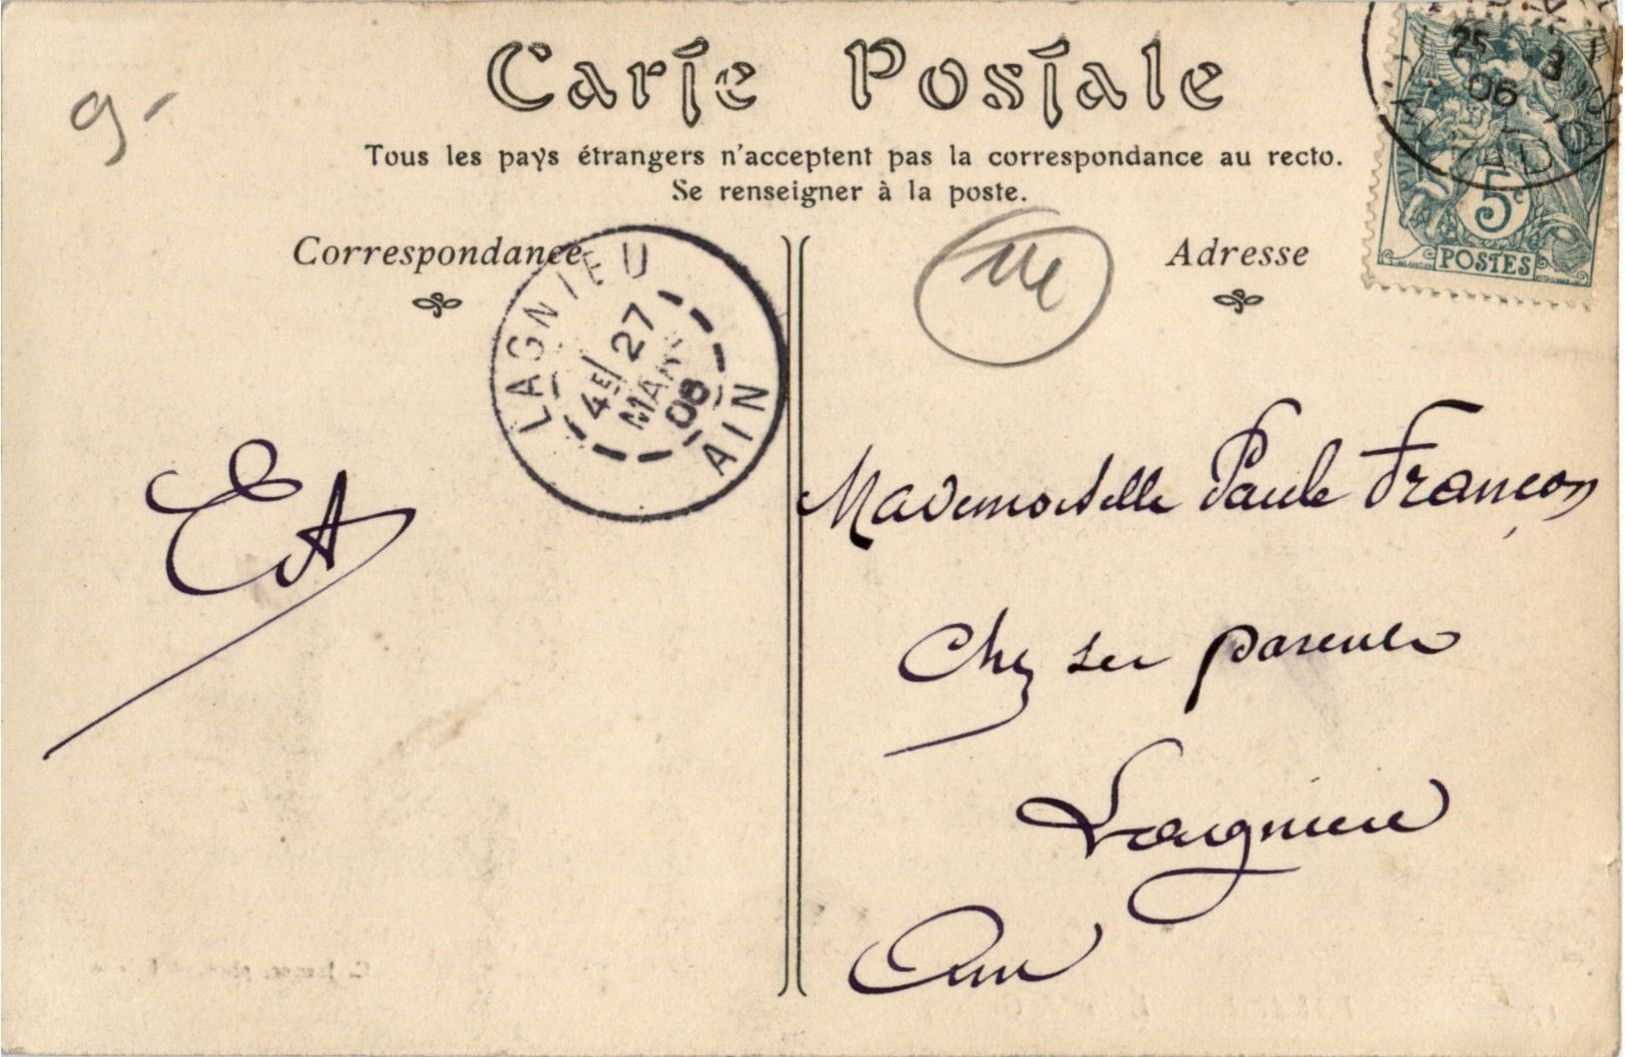 Carte Postale
Tous les pays étrangers n'acceptent pas la correspondance au recto.
Se renseigner à la poste.
Correspondance
Adresse
9-
25 3
06
5c
POSTES
LAGNIEU
4E 27
MARS
06
AIN
EA
Mademoiselle Paule Françon
Chez ses parents
Lagnieu
Ain